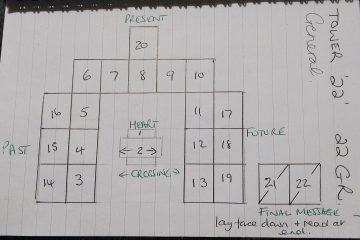 TOWER '22' 22 GR.
General.
PRESENT
20
6 7 8 9 10
16 5 11 17
HEART
1
FUTURE
PAST
15 4 2 12 18
CROSSING
14 3 13 19
21 22
FINAL MESSAGE -
lay face down + read at
end.